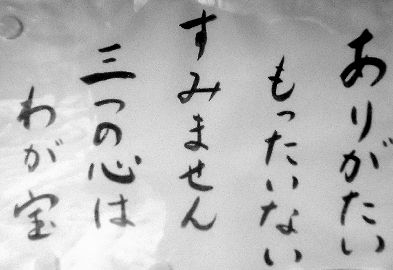 ありがたい
もったいない
すみません
三つの心は
わが宝